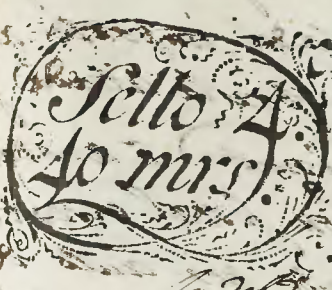 Sello 4.
40 mrs.